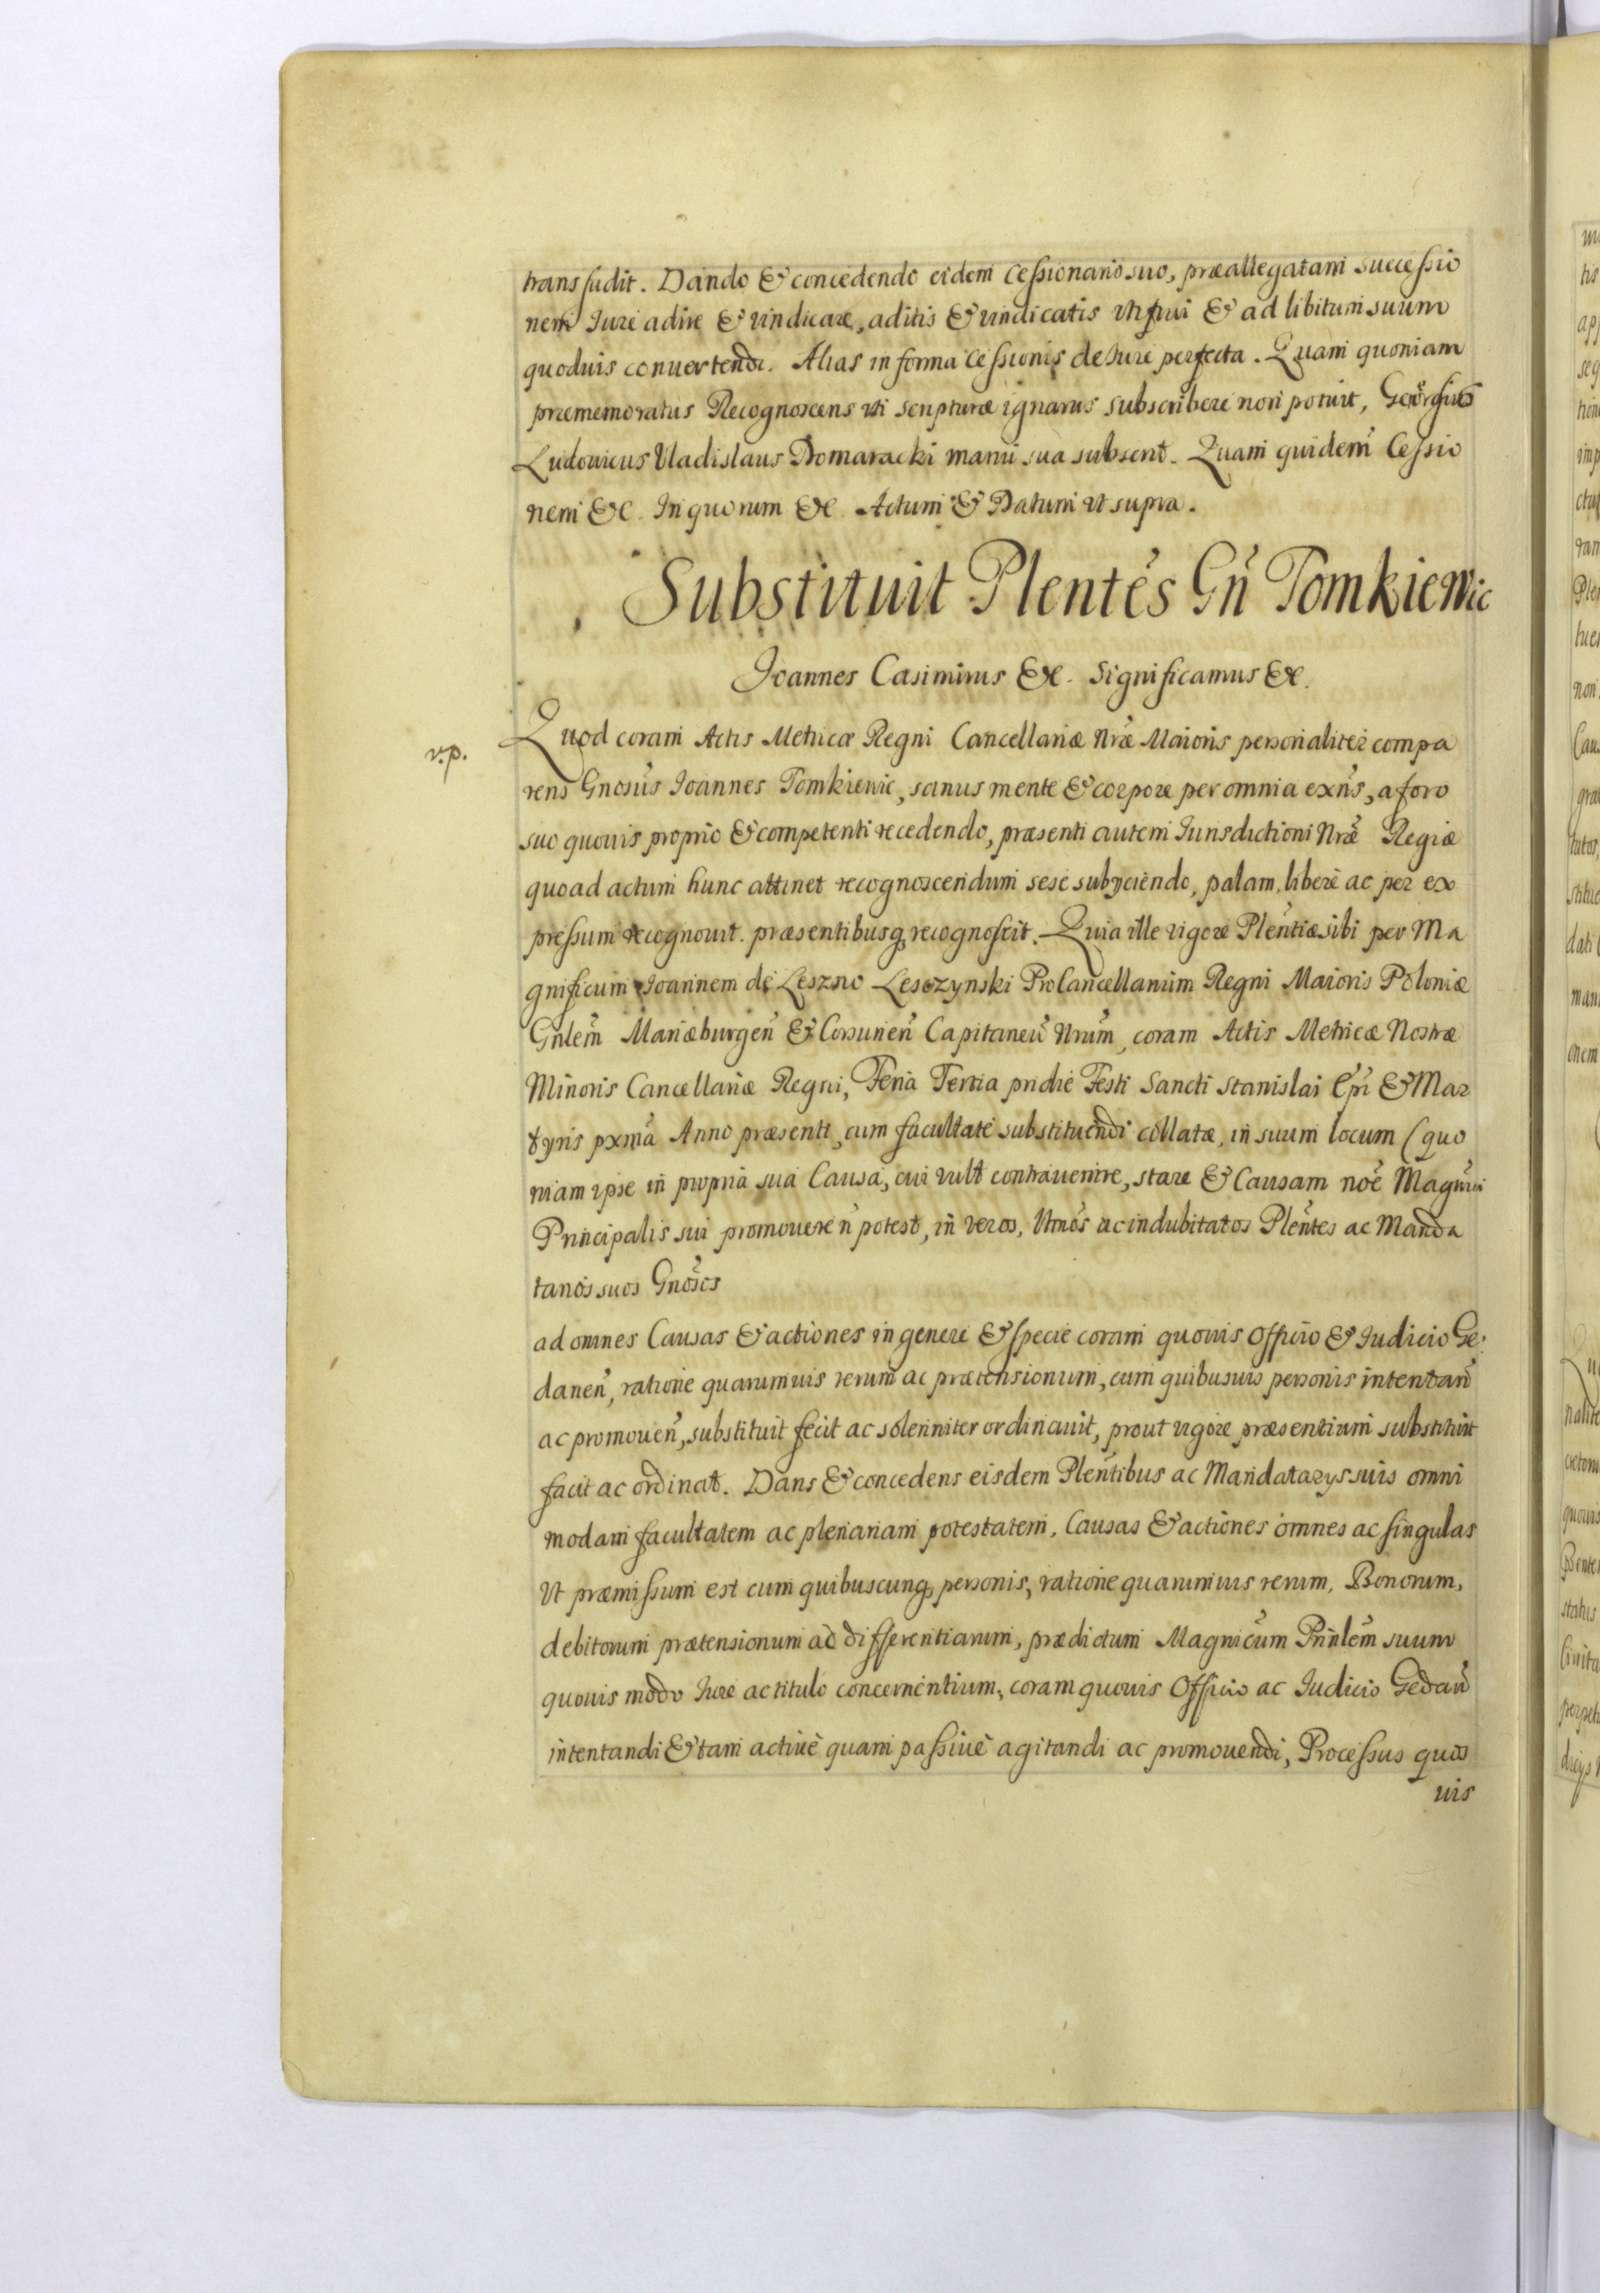 transfudit. Dando & concedendo eidem Cessionario suo, præallegatam successio
nem Iure adire & vindicare, aditis & vindicatis uti frui & ad libitum suum
quoduis conuertendi. Alias in forma Cessionis de Iure perfecta. Quam quoniam
præmemoratus Recognoscens uti scripturæ ignarus subscribere non potuit, Georgius
Ludouicus Vladislaus Domaracki manu sua subscrit. Quam quidem Cessio
nem &c. In quorum &c. Actum & Datum ut supra.
Substituit Plentes Gn Tomkiewic
Ioannes Casimirus &c. Significamus &c.
v.p.
Quod coram Actis Metricæ Regni Cancellariæ Nræ Maioris personaliter compa
rens Gnosus Ioannes Tomkiewic, sanus mente & corpore per omnia exns, a foro
suo quouis proprio & competenti recedendo, præsenti autem Iurisdictioni Nræ Regiæ
quoad actum hunc attinet recognoscendum sese subyciendo, palam, libere ac per ex
pressum recognouit. præsentibusq recognoscit. Quia ille vigore Plentiæ sibi per Ma
gnificum Ioannem de Leszno Lesczynski ProCancellarium Regni Maioris Poloniæ
Gnlem Mariæburgen & Corsunen Capitaneu Nrum, coram Actis Metricæ Nostræ
Minoris Cancellariæ Regni, Feria Tertia pridie Festi Sancti Stanislai Epi & Mar
tyris pxma Anno præsenti, cum facultate substituendi collatæ, in suum locum (quo
niam ipse in propria sua Causa, cui vult contrauenire, stare & Causam noe Magnui
Principalis sui promouere n potest, in veros, ltmos ac indubitatos Plentes ac Manda
tarios suos Gnosos
ad omnes Causas & actiones in genere & specie coram quouis Officio & Iudicio Ge
danen, ratione quarumuis rerum ac prætensionum, cum quibusuis personis intentan
ac promouen, substituit fecit ac solenniter ordinauit, prout vigore præsentium substituit
facit ac ordinat. Dans & concedens eisdem Plentibus ac Mandatarys suis omni
modam facultatem ac plenariam potestatem, Causas & actiones omnes ac singulas
Ut præmissum est cum quibuscunq personis, ratione quarumuis rerum, Bonorum,
debitorum prætensionum ac differentiarum, prædictum Magnicum Prinlem suum
quouis modo Iure ac titulo concernentium, coram quouis Officio ac Iudicio Gedan
intentandi & tam actiue quam passiue agitandi ac promouendi, Processus quos
uis